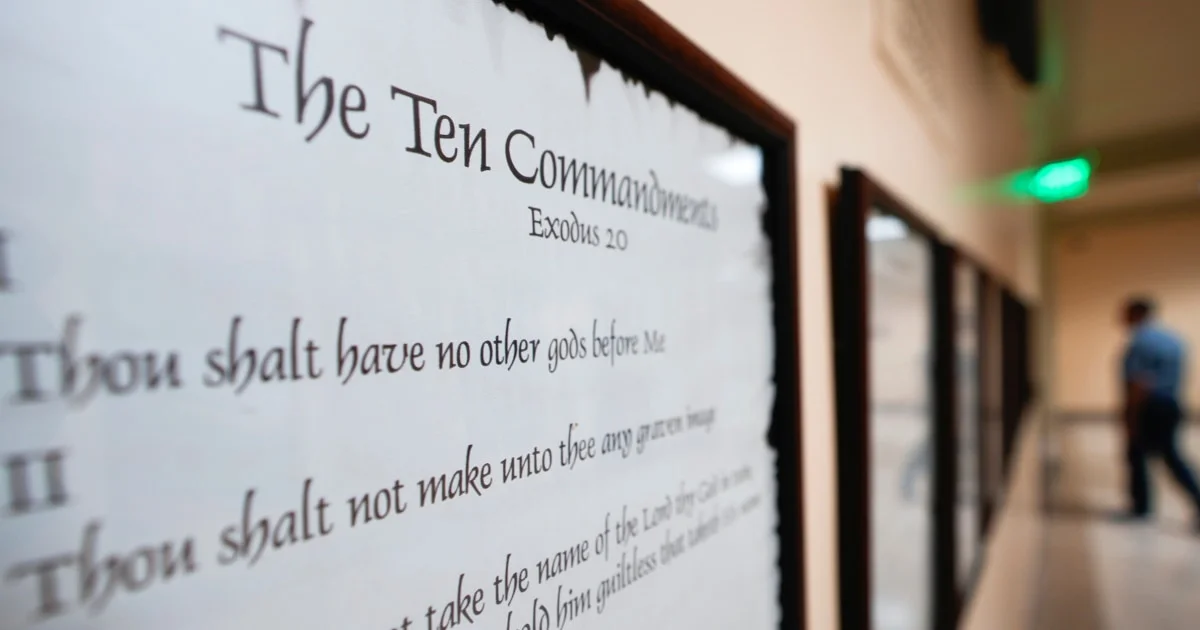 The Ten Commandments
Exodus 20
I
Thou shalt have no other gods before Me
II
Thou shalt not make unto thee any graven image
take the name of the Lord thy God in vain,
him guiltless that taketh His name